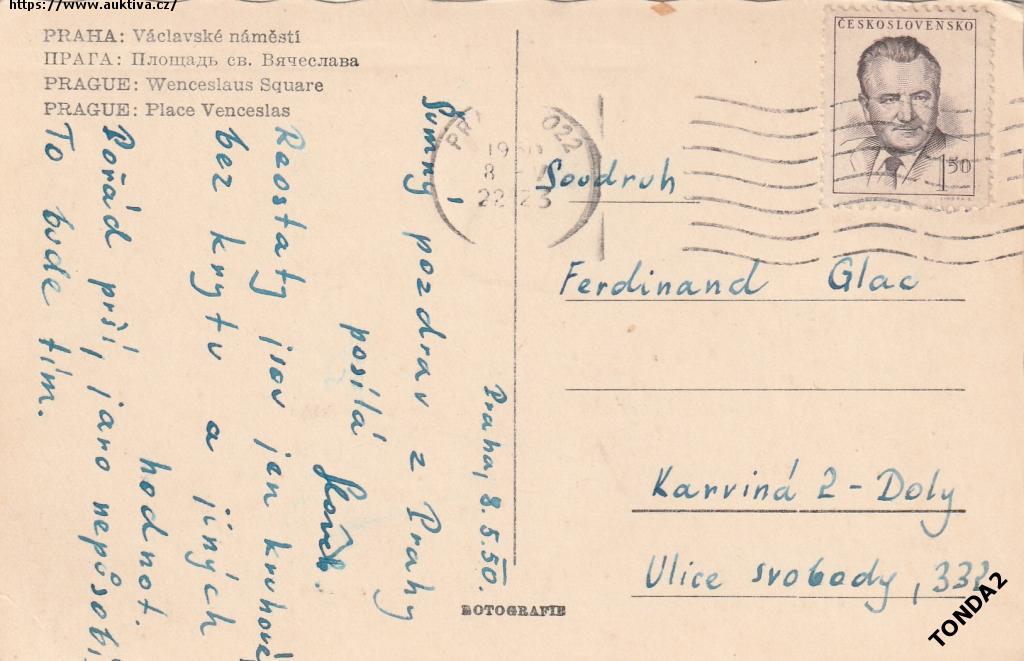 https://www.auktiva.cz/
PRAHA: Václavské náměstí
ПРАГА: Площадь св. Вячеслава
PRAGUE: Wenceslaus Square
PRAGUE: Place Venceslas
Praha, 8.5.50.
Šumný pozdrav z Prahy
posílá
Reostaty jsou jen kruhové,
bez krytu a jiných
hodnot.
Pořád prší, jaro nepůsobí.
To bude tím.
ČESKOSLOVENSKO
150
8
22-23
Soudruh
Ferdinand Glac
Karviná 2 - Doly
Ulice svobody, 332
ROTOGRAFIE
TONDA2